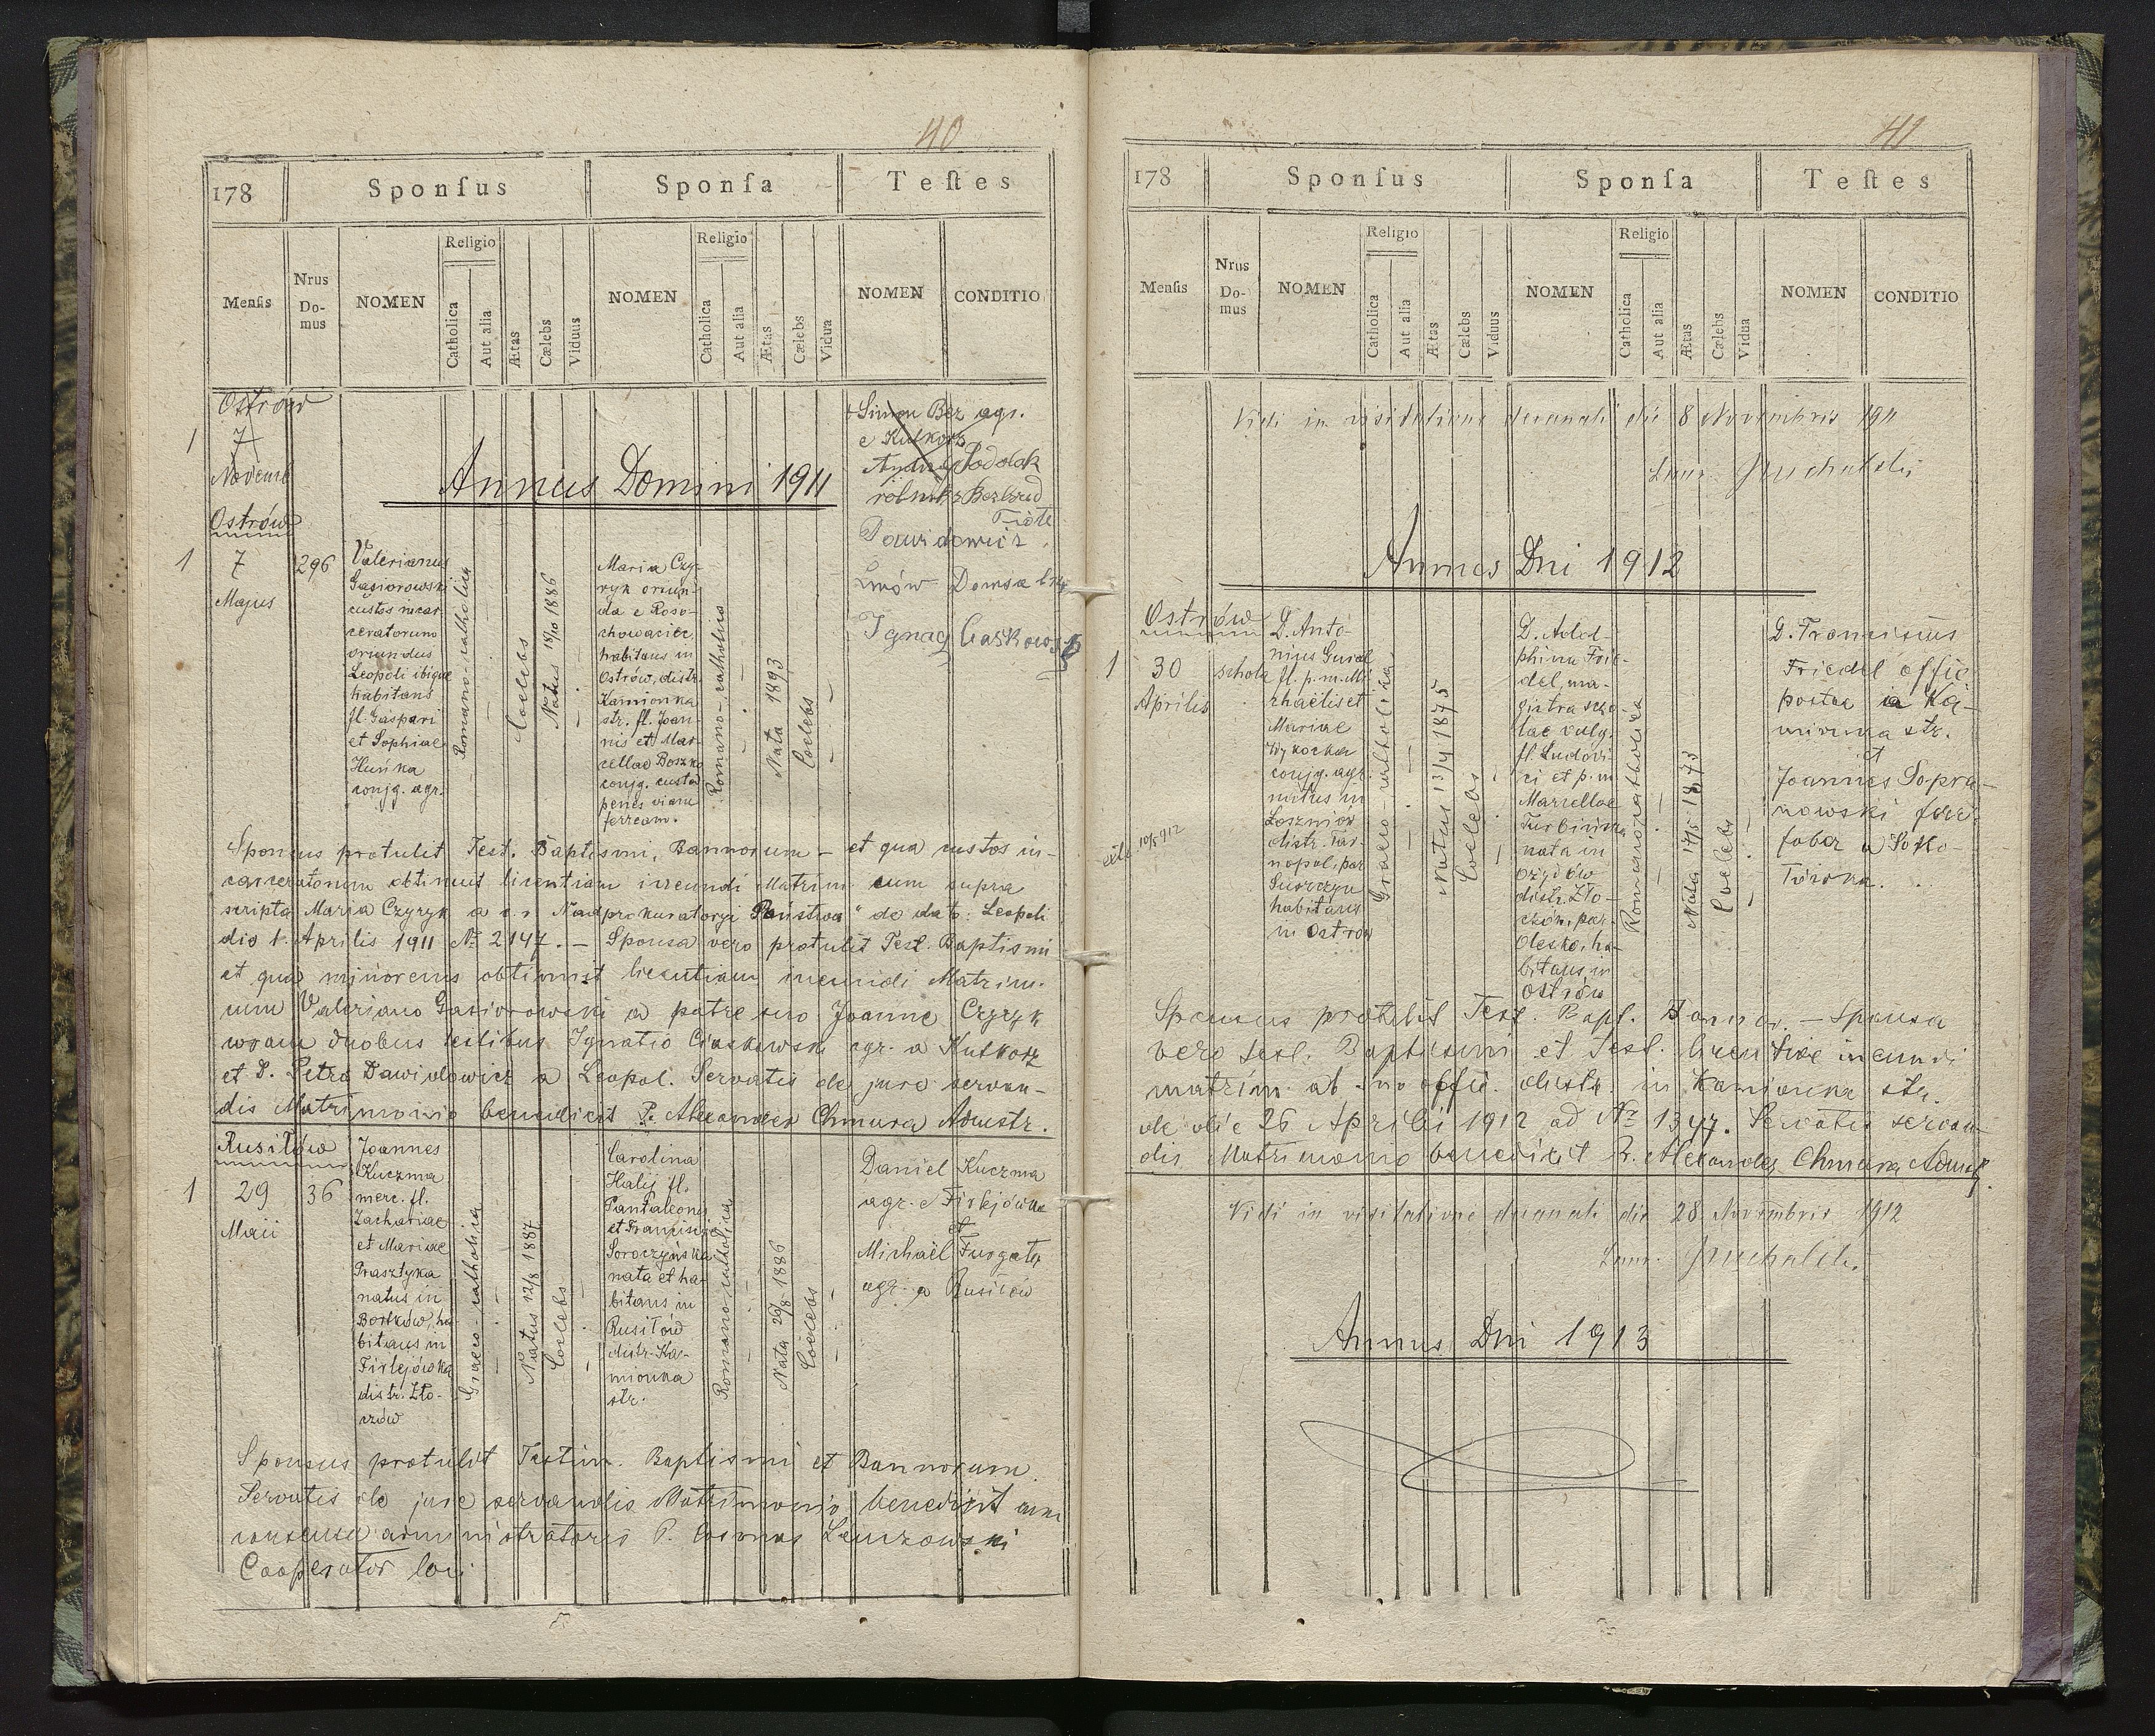 40
178 Sponſus Sponſa Teſtes
Menſis Nrus Do-mus NOMEN Religio Catholica Aut alia Ætas Cælebs Viduus NOMEN Religio Catholica Aut alia Ætas Cælebs Vidua NOMEN CONDITIO
Ostrów
1 7
Novemb
+ Simon Bez agr.
e Kutkorz
Andrej Podolak
rolnik z Bezbrud
Annus Domini 1911
Piotr
Dawidowicz
Lwów Domsa
Ignacy Ciaskowski
Ostrów
1 7
Majus
296
Valerianus
Gąsiorowski
custos incar-
ceratorum
oriundus
Leopoli ibique
habitans
fl. Gaspari
et Sophiae
Huńka
conjg. agr.
Romano-catholica
Coelebs
Natus 18/10 1886
Maria Czy-
ryk oriun-
da e Roso-
chowaciec
habitans in
Ostrów, distr.
Kamionka
str. fl. Joan-
nis et Mar-
cellae Boszko
conjg. custod.
penes viam
ferream.
Romano-catholica
Nata 1893
Coelebs
Sponsus protulit Test. Baptismi, Bannorum – et qua custos in-
carceratorum obtinuit licentiam ineundi Matrim. cum supra
scripta Maria Czyryk a c. r. Nadprokuratoryi Państwa" de dato: Leopoli
die 1. Aprilis 1911 № 2147. – Sponsa vero protulit Test. Baptismi
et qua minorenis obtinuit licentiam ineundi Matrim.
cum Valeriano Gąsiorowski a patre suo Joanne Czyryk
coram duobus testibus Ignatio Ciaskowski agr. a Kutkorz
et P. Petro Dawidowicz a Leopol. Servatis de jure servan-
dis Matrimonio benedixit P. Alexander Chmura Admstr.
Rusiłów
1 29
Maii
36
Joannes
Kuczma
merc. fl.
Zachariae
et Mariae
Prasztyka
natus in
Bortków, ha-
bitans in
Firlejówka
distr. Zło-
czów
Graeco-catholica
Natus 12/8 1887
Coelebs
Carolina
Halij fl.
Pantaleonis
et Franciscae
Soroczyńska
nata et ha-
bitans in
Rusiłów
distr. Ka-
mionka
str.
Romano-catholica
Nata 20/8 1886
Coelebs
Daniel Kuczma
agr. e Firlejówka
et
Michaël Furgata
agr. a Rusiłów
Sponsus protulit Testim. Baptismi et Bannorum.
Servatis de jure servandis Matrimonio benedixit cum
consensu administratoris P. Cosmas Lenzowski
Cooperator loci
41
178 Sponſus Sponſa Teſtes
Menſis Nrus Do-mus NOMEN Religio Catholica Aut alia Ætas Cælebs Viduus NOMEN Religio Catholica Aut alia Ætas Cælebs Vidua NOMEN CONDITIO
Vidi in visitatione decanali die 8 Novembris 1911
Annus Dni 1912
Ostrów
1 30
Aprilis
schola
10/5 912
D. Anto-
nius Gural
fl. p. m. Mi-
chaëlis et
Mariae
Wykocka
conjg. agr.
natus in
Łoszniów
distr. Tar-
nopol, par.
Suszczyn
habitans
in Ostrów
Graeco-catholica
Natus 13/4 1875
Coelebs
D. Adol-
phina Frie-
del, ma-
gistra scho-
lae vulg.
fl. Ludovi-
ci et p. m.
Marcellae
Turbińska
nata in
Ożydów
distr. Zło-
czów, par.
Olesko, ha-
bitans in
Ostrów
Romano-catholica
Nata 17/5 1873
Coelebs
D. Franciscus
Friedel offic.
postae a Ka-
mionka str.
et
Joannes Sopra-
nowski ferri-
faber a Soko-
łówka.
Sponsus protulit Test. Bapt. Bannor. – Sponsa
vero Test. Baptismi et Test. licentiae ineundi
matrim. ab suo offic. distr. in Kamionka str.
de die 26 Aprilis 1912 ad № 1347. Servatis servan-
dis Matrimonio benedixit P. Alexander Chmura Admstr.
Vidi in visitatione decanali die 28 Novembris 1912
Annus Dni 1913